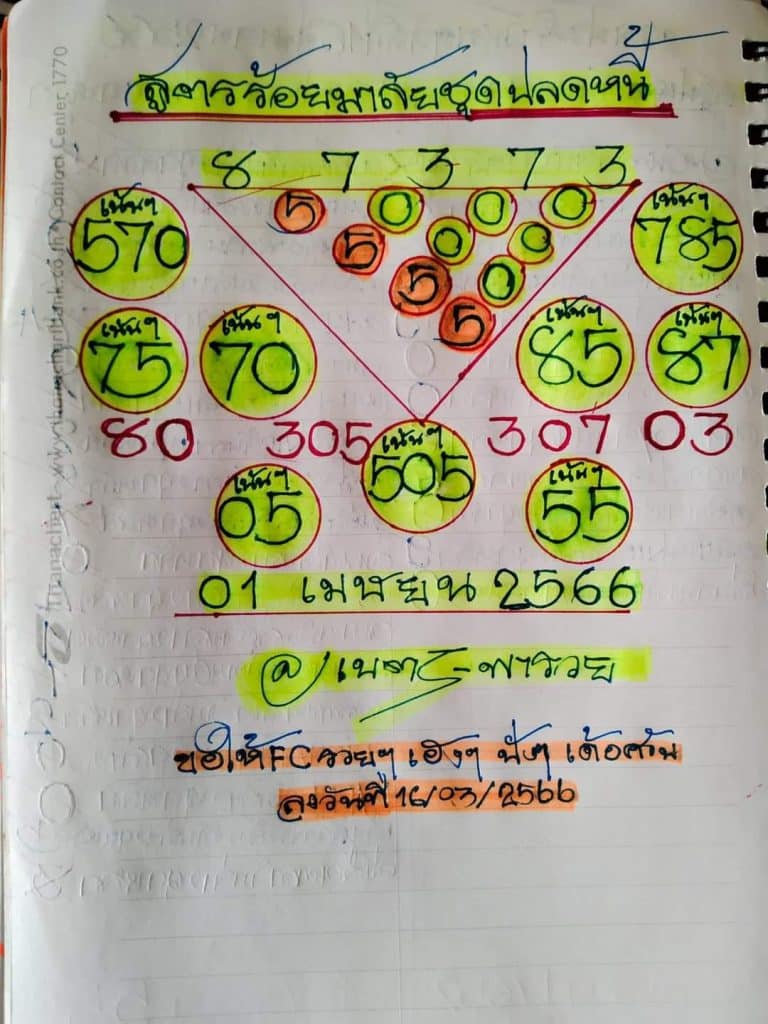 สูตรร้อยมาลัยชุดปลดหนี้
8 7 3 7 3
5 0 0 0
5 0 0
5 0
5
เน้นๆ 570
เน้นๆ 785
เน้นๆ 75
เน้นๆ 70
เน้นๆ 85
เน้นๆ 87
80 305 307 03
เน้นๆ 505
เน้นๆ 05
เน้นๆ 55
01 เมษายน 2566
@ พารวย
ขอให้ FC รวยๆ เฮงๆ ปังๆ เด้อค่ะ
ลงวันที่ 16/03/2566
thanachart www.thanachartbank.co.th Contact Center 1770